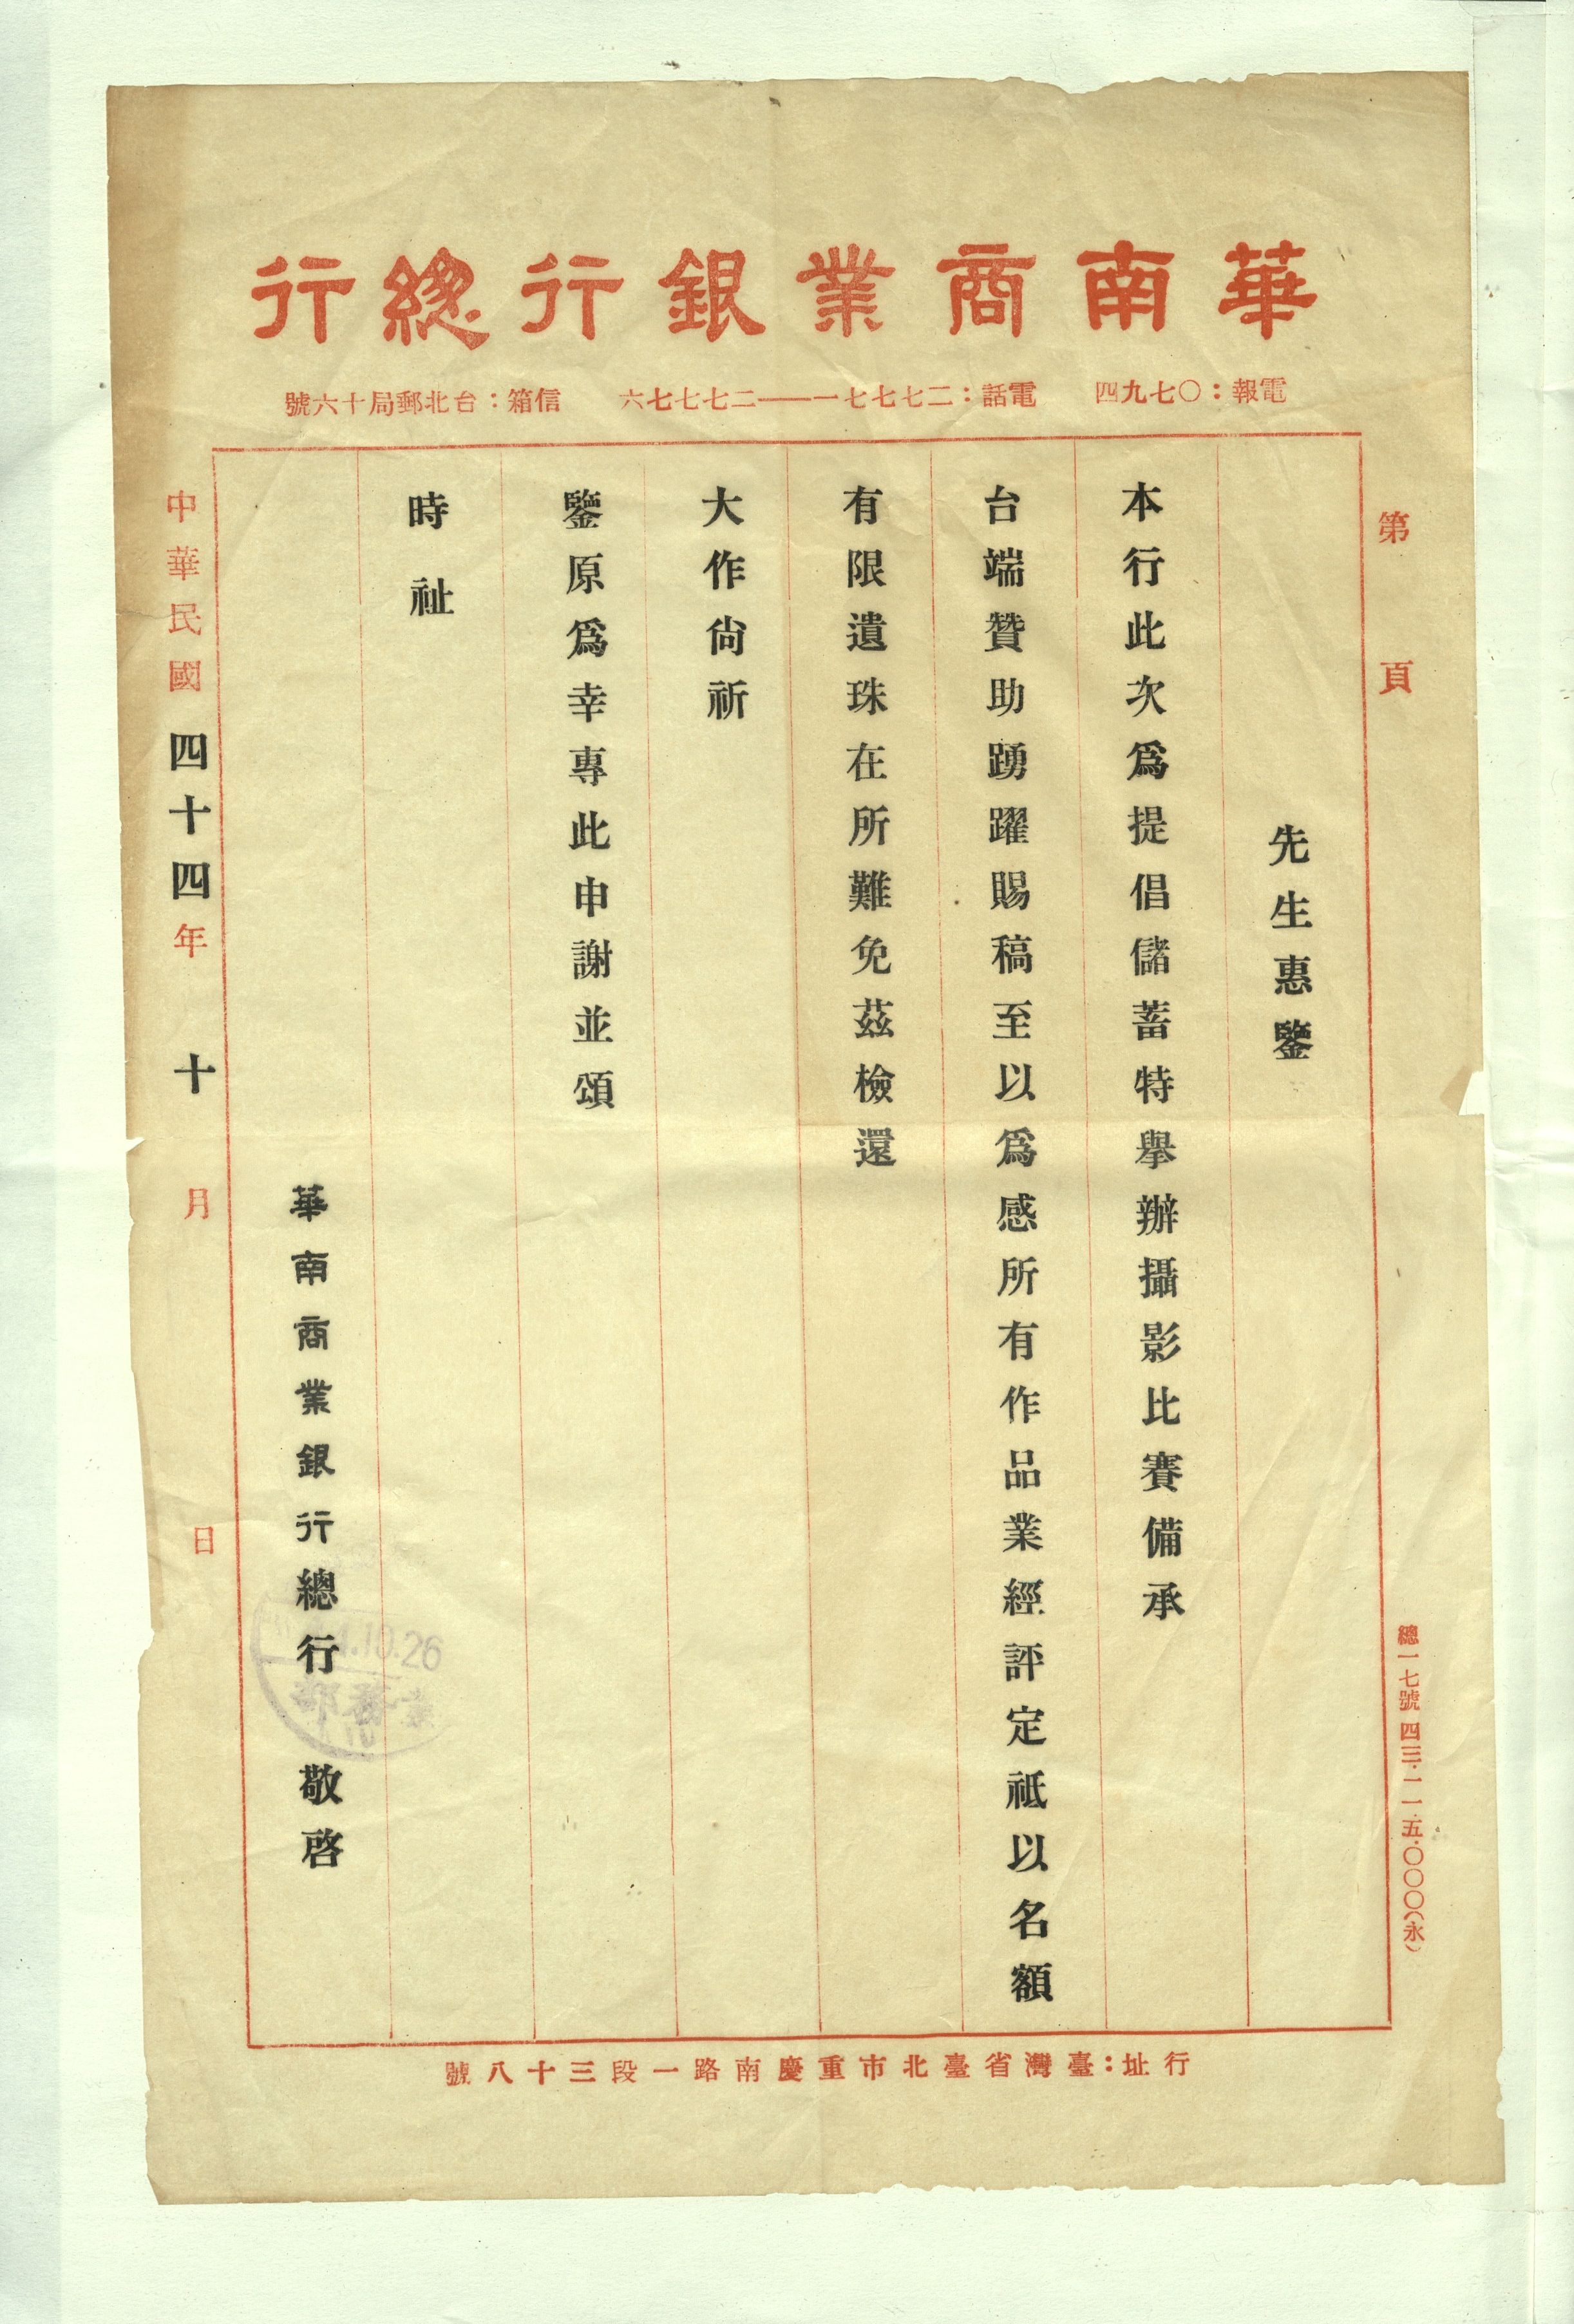 華南商業銀行總行
電報：〇七九四　電話：二七七七一——二七七七六　信箱：台北郵局十六號
第　頁
先生惠鑒
本行此次爲提倡儲蓄特舉辦攝影比賽備承
台端贊助踴躍賜稿至以爲感所有作品業經評定祗以名額
有限遺珠在所難免茲檢還
大作尙祈
鑒原爲幸專此申謝並頌
時祉
華南商業銀行總行　敬啓
中華民國四十四年　十　月　日
10.26
業務部
總一七號 四三・一一・五・〇〇〇（永）
行址：臺灣省臺北市重慶南路一段三十八號